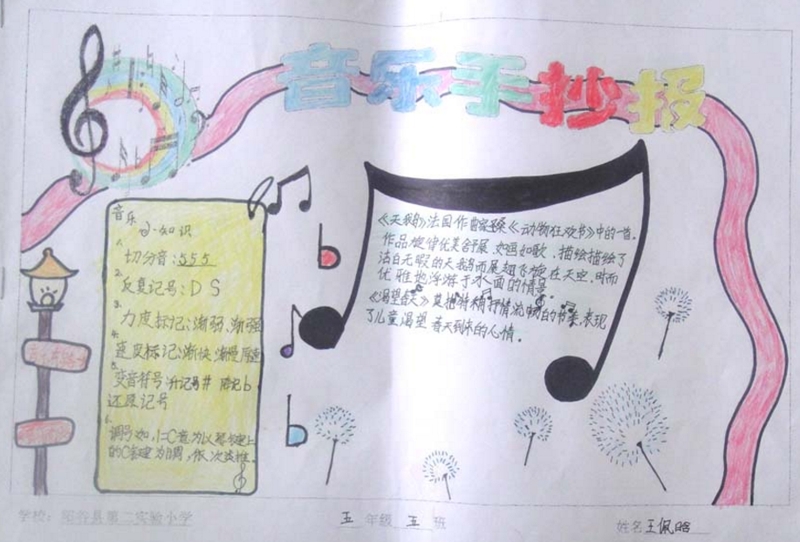 音乐手抄报
音乐
小知识
1.
切分音:555
2.
反复记号:D S
3.
力度标记:渐弱.渐强
4.
速度标记:渐快.渐慢.原速
5.
变音符号:升记号# 降记b
还原记号
6.
调号:如,1=C意为以琴键上
的C键为1调,依次类推.
《天鹅》法国作曲家《动物狂欢节》中的一首.
作品旋律优美舒展,如画如歌,描绘描绘了
洁白无暇的天鹅而展翅飞旋在天空,时而
优雅地浮游于水面的情景.
《渴望春天》
表现
了儿童渴望春天到来的心情.
学校:阳谷县第二实验小学
五年级五班
姓名王佩晗